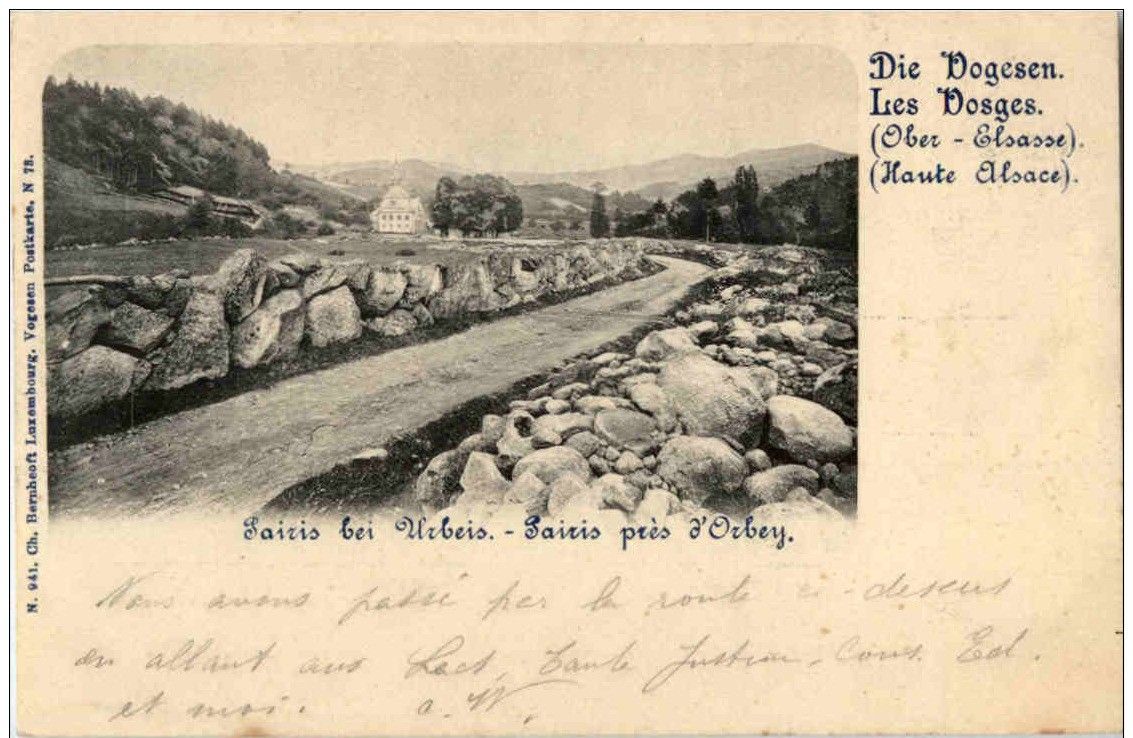 Die Vogesen.
Les Vosges.
(Ober - Elsasse).
(Haute Alsace).
N. 941. Ch. Bernhoeft Luxembourg. Vogesen Postkarte. N 75.
Pairis bei Urbeis. - Pairis près d'Orbey.
Nous avons passé par la route ci-dessus
en allant aux Lacs, Tante Justine, Cous. Ed.
et moi. a. W.